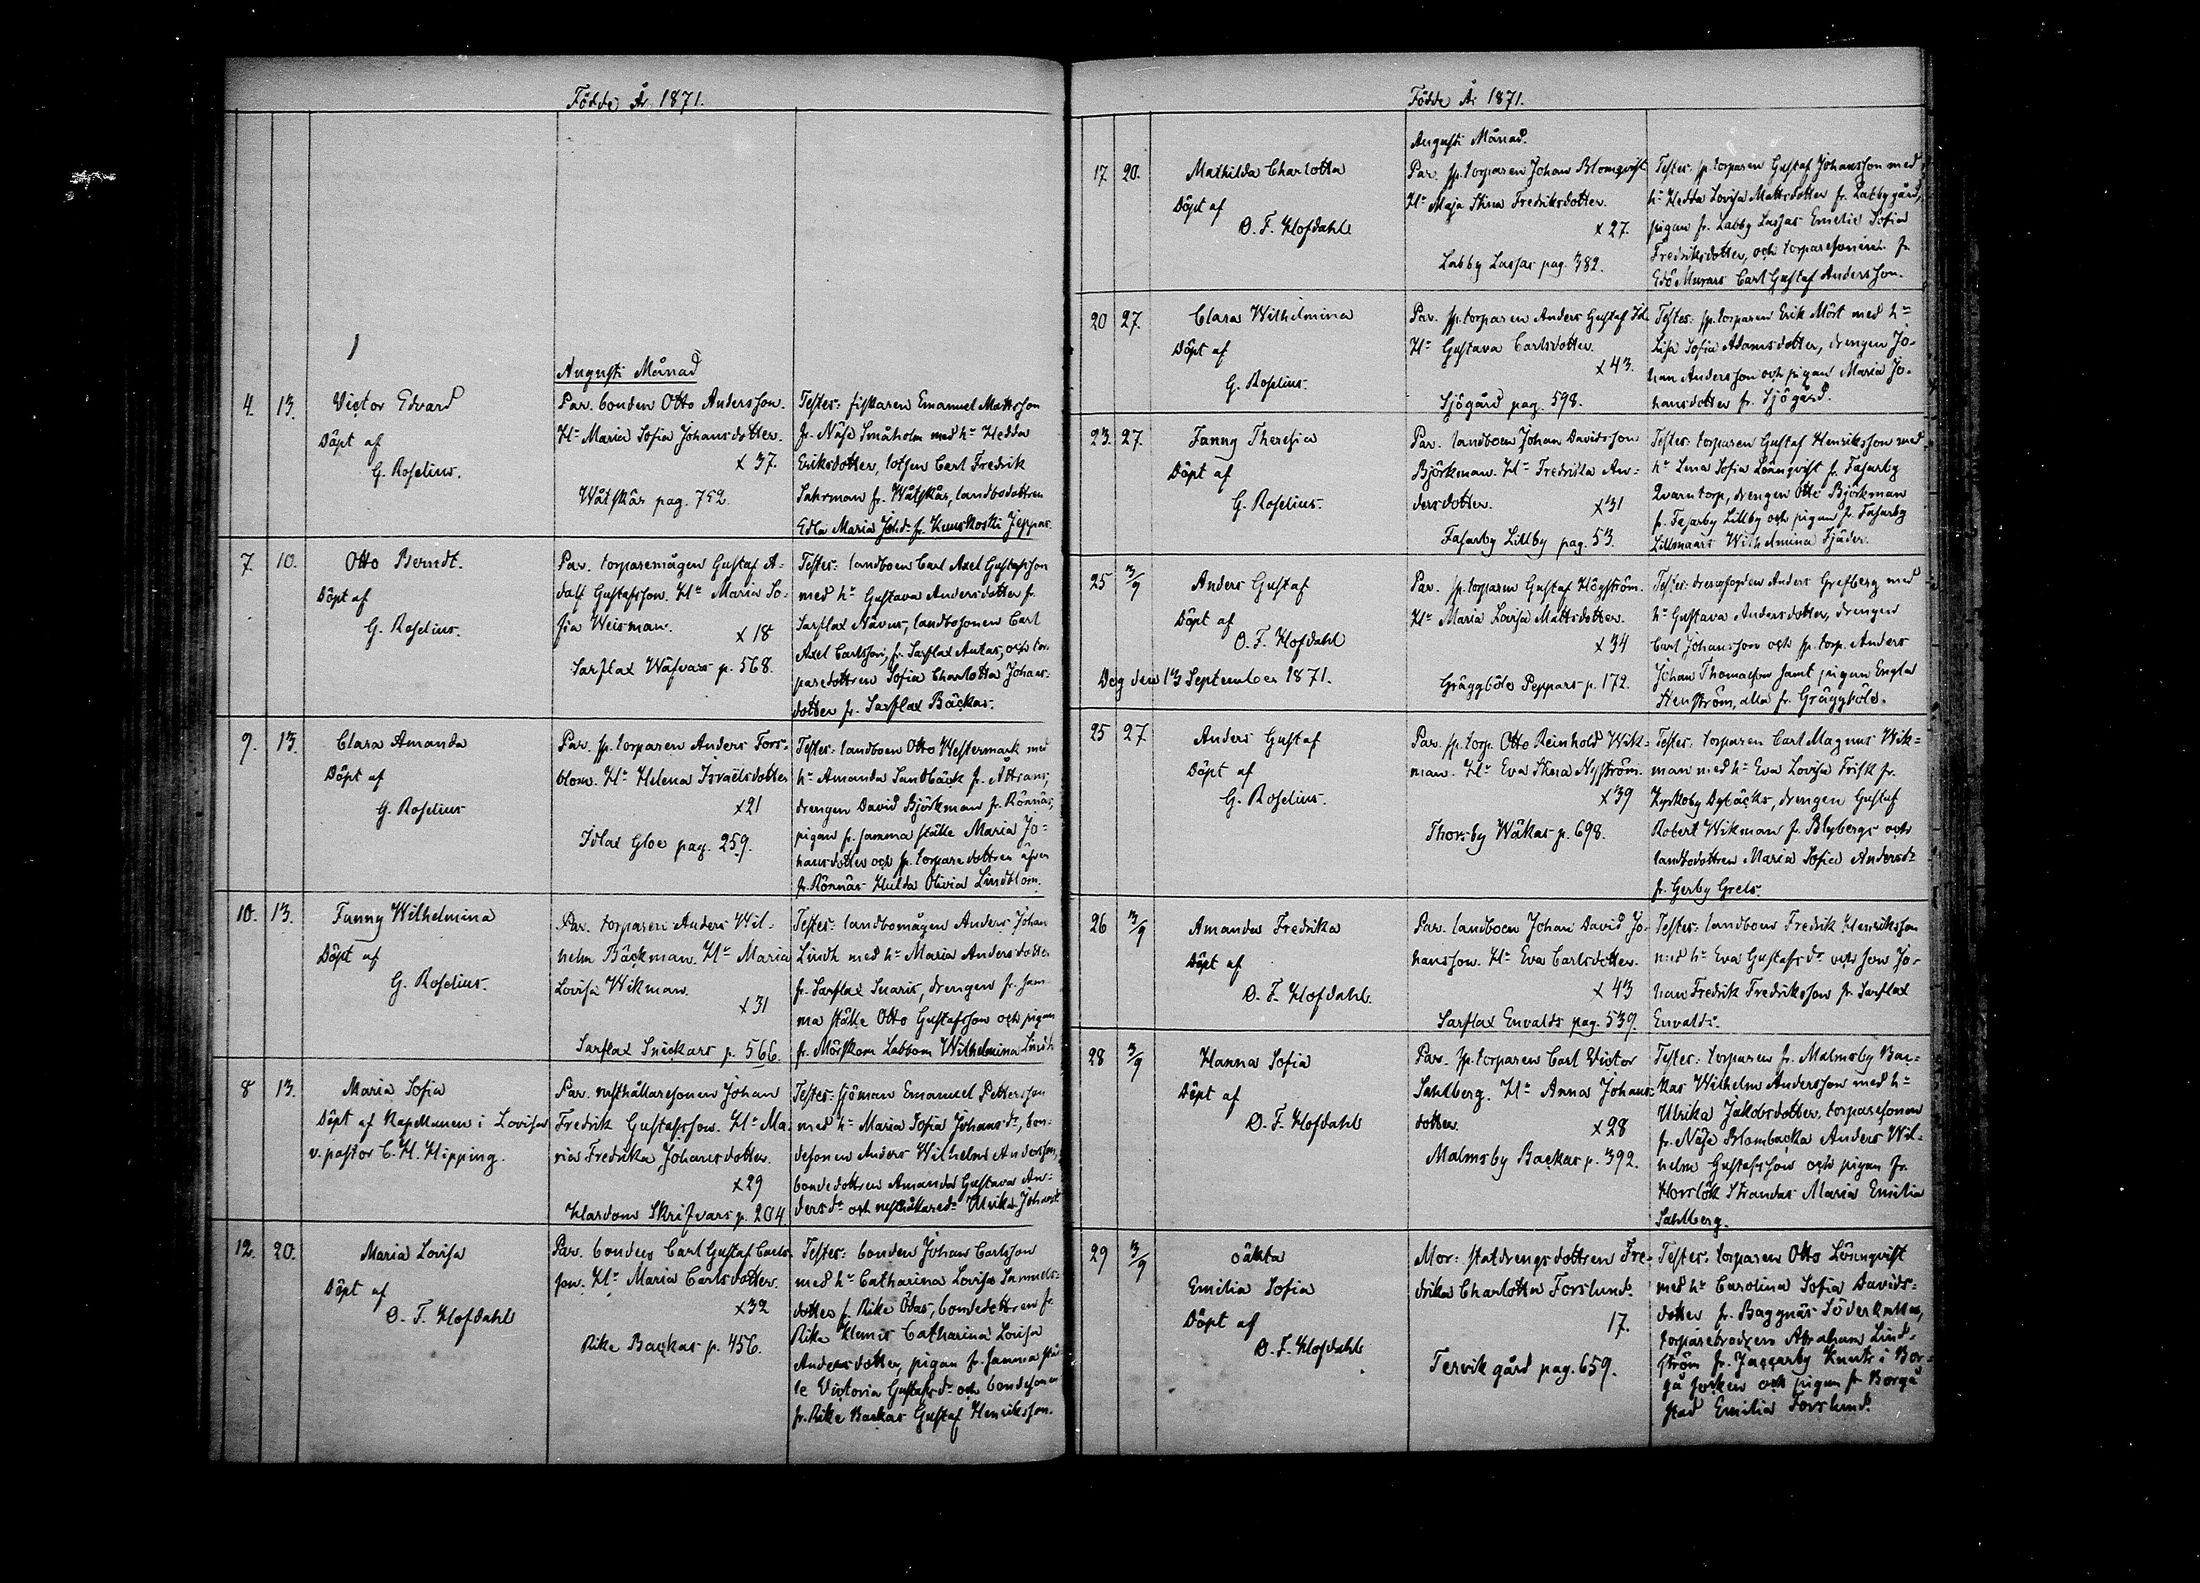 Födde År 1871.
Augusti Månad
4. 13. Victor Edvard
Döpt af
G. Roselius.
Par. bonden Otto Andersson.
H:u Maria Sofia Johansdotter.
x 37.
Wåtskär pag. 752.
Testes: fiskaren Emanuel Mattsson
fr. Näse Småholm med h:u Hedda
Eriksdotter, lotsen Carl Fredrik
Sahrman fr. Wåtskär, landbodottren
Edla Maria Joh:d:r fr. Kuuskoski Jeppas.
7. 10. Otto Berndt.
Döpt af
G. Roselius.
Par. torparemågen Gustaf A-
dolf Gustafsson. H:u Maria So-
fia Weisman.
x 18
Sarflax Wäfvars p. 568.
Testes: landboen Carl Axel Gustafsson
med h:u Gustava Andersdotter fr.
Sarflax Nävus, landbosonen Carl
Axel Carlsson, fr. Sarflax Antas, och tor-
paredottren Sofia Charlotta Johans-
dotter fr. Sarflax Bäckas.
9. 13. Clara Amanda
Döpt af
G. Roselius
Par. sp. torparen Anders Fors-
blom. H:u Helena Israëlsdotter
x 21
Idlax Gloe pag. 259.
Testes: landboen Otto Westermark med
h:u Amanda Sandbäck fr. Åttrans,
drengen David Björkman fr. Rönnäs,
pigan fr. samma ställe Maria Jo-
hansdotter och sp. torparedottren äfven
fr. Rönnäs Hulda Olivia Lindblom.
10. 13. Fanny Wilhelmina
Döpt af
G. Roselius.
Par. torparen Anders Wil-
helm Bäckman. H:u Maria
Lovisa Wikman.
x 31
Sarflax Snickars p. 566.
Testes: landbomågen Anders Johan
Lindh med h:u Maria Andersdotter
fr. Sarflax Snaris, drengen fr. sam-
ma ställe Otto Gustafsson och pigan
fr. Mörskom Labbom Wilhelmina Lindh
8 13. Maria Sofia
Döpt af Kapellanen i Lovisa
v. pastor C. H. Hipping.
Par. rusthållaresonen Johan
Fredrik Gustafsson. H:u Ma-
ria Fredrika Johansdotter.
x 29
Hardom Skrifvars p. 204
Testes: sjöman Emanuel Pettersson
med h:u Maria Sofia Johansd:r, bon-
desonen Anders Wilhelm Andersson,
bondedottren Amanda Gustava An-
dersd:r och rusthållared:r Ulrika Johansd:r
12. 20. Maria Lovisa
Döpt af
O. F. Hofdahl
Par. bonden Carl Gustaf Carls-
son. H:u Maria Carlsdotter.
x 32
Rike Backas p. 456.
Testes: bonden Johan Carlsson
med h:u Catharina Lovisa Samuels-
dotter fr. Rike Ödas, bondedottren fr.
Rike Klemis Catharina Lovisa
Andersdotter, pigan fr. samma stäl-
le Victoria Gustafsd:r och bondesonen
fr. Rike Backas Gustaf Henriksson.
Födde År 1871.
Augusti Månad.
17. 20. Mathilda Charlotta
Döpt af
O. F. Hofdahl
Par. sp. torparen Johan Blomqvist
H:u Maja Stina Fredriksdotter.
x 27.
Labby Lassas pag. 382.
Testes: sp. torparen Gustaf Johansson med
h:u Hedda Lovisa Mattsdotter fr. Labbygård,
pigan fr. Labby Lassas Emelie Sofia
Fredriksdotter, och torparesonen fr.
Edö Murars Carl Gustaf Andersson.
20 27. Clara Wilhelmina
Döpt af
G. Roselius.
Par. sp. torparen Anders Gustaf
H:u Gustava Carlsdotter.
x 43.
Sjögård pag. 598.
Testes: sp. torparen Erik Mört med h:u
Lisa Sofia Adamsdotter, drengen Jo-
han Andersson och pigan Maria Jo-
hansdotter fr. Sjögård.
23. 27. Fanny Theresia
Döpt af
G. Roselius.
Par. landboen Johan Davidsson
Björkman. H:u Fredrika An-
dersdotter.
x 31
Fasarby Lillby pag. 53.
Testes: torparen Gustaf Henriksson med
h:u Lena Sofia Lönnqvist fr. Fasarby
Qvarntorp, drengen Otto Björkman
fr. Fasarby Lillby och pigan fr. Fasarby
Lillmaars Wilhelmina Fjäder.
25 3/9 Anders Gustaf
Döpt af
O. F. Hofdahl
Dog den 13 September 1871.
Par. sp. torparen Gustaf Högström.
H:u Maria Lovisa Mattsdotter.
x 34
Gräggböle Peppars p. 172.
Testes: drengfogden Anders Grefberg med
h:u Gustava Andersdotter, drengen
Carl Johansson och sp. torp. Anders
Johan Thomasson samt pigan Engla
Stenström, alla fr. Gräggböle.
25 27 Anders Gustaf
Döpt af
G. Roselius.
Par. sp. torp. Otto Reinhold Wik-
man. H:u Eva Stina Nyström.
x 39
Thorsby Wäkas p. 698.
Testes: torparen Carl Magnus Wik-
man med h:u Eva Lovisa Frisk fr.
Kyrkoby Dybäcks, drengen Gustaf
Robert Wikman fr. Blybergs och
landbodottren Maria Sofia Andersd:r
fr. Gerby Grels.
26 3/9 Amanda Fredrika
Döpt af
O. F. Hofdahl.
Par. landboen Johan David Jo-
hansson. H:u Eva Carlsdotter.
x 43
Sarflax Envalds pag. 539.
Testes: landboen Fredrik Henriksson
med h:u Eva Gustafsd:r och son Jo-
han Fredrik Fredriksson fr. Sarflax
Envalds.
28 3/9 Hanna Sofia
Döpt af
O. F. Hofdahl
Par. sp. torparen Carl Victor
Sahlberg. H:u Anna Johans-
dotter.
x 28
Malmsby Backas p. 392.
Testes: torparen fr. Malmsby Bac-
kas Wilhelm Andersson med h:u
Ulrika Jakobsdotter, torparesonen
fr. Näse Blombacka Anders Wil-
helm Gustafsson och pigan fr.
Horslök Strandas Maria Emilia
Sahlberg.
29 3/9 oäkta
Emilia Sofia
Döpt af
O. F. Hofdahl
Mor: statdrengsdottren Fre-
drika Charlotta Forslund.
17.
Tervik gård pag. 659.
Testes: torparen Otto Lönnqvist
med h:u Carolina Sofia Davids-
dotter fr. Baggnäs Söderkulla,
torparebrodren Abraham Lind-
ström fr. Jaccarby Knuts i Bor-
gå socken och pigan fr. Borgå
stad Emilia Forslund.